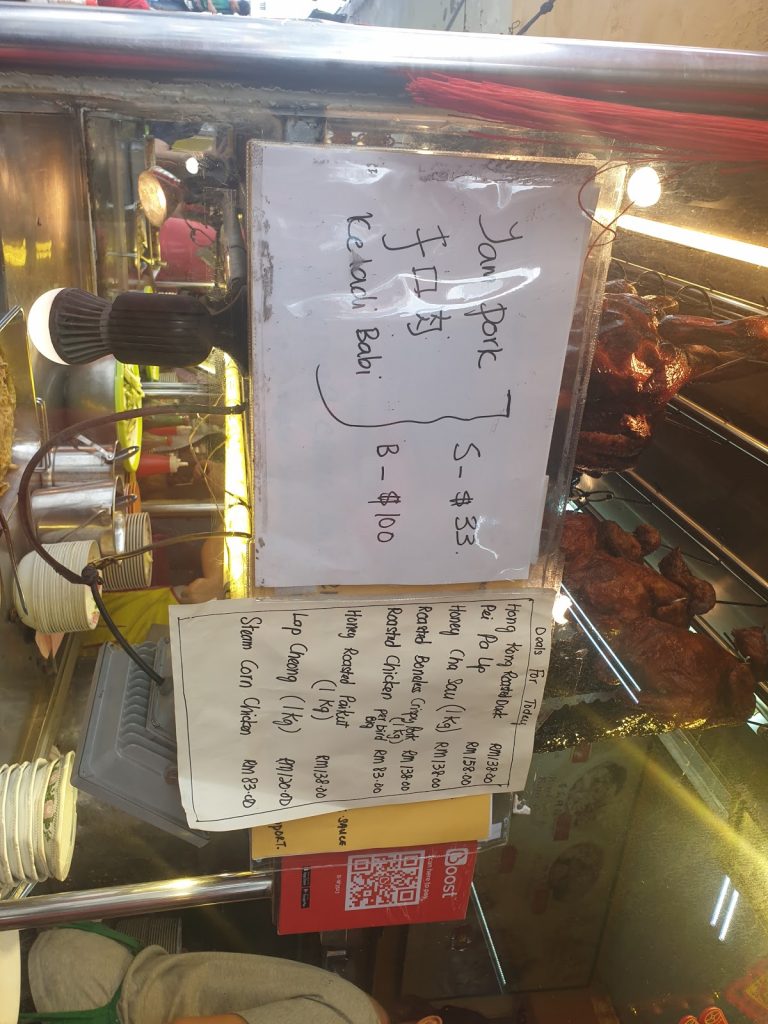 Yam pork
Keladi Babi
S - $33.
B - $100
Deals For Today
Hong Kong Roasted Duck RM138.00
Pei Pa Up RM158.00
Honey Cha Sau (1Kg) RM138.00
Roasted Boneless Crispy Pork (1Kg) RM138.00
Roasted Chicken per bird RM 83.00
Honey Roasted Paikut
(1 Kg) RM138.00
Lap Cheong (1Kg) RM120.00
Steam Corn Chicken RM83.00
SAUCE
PORT.
Boost